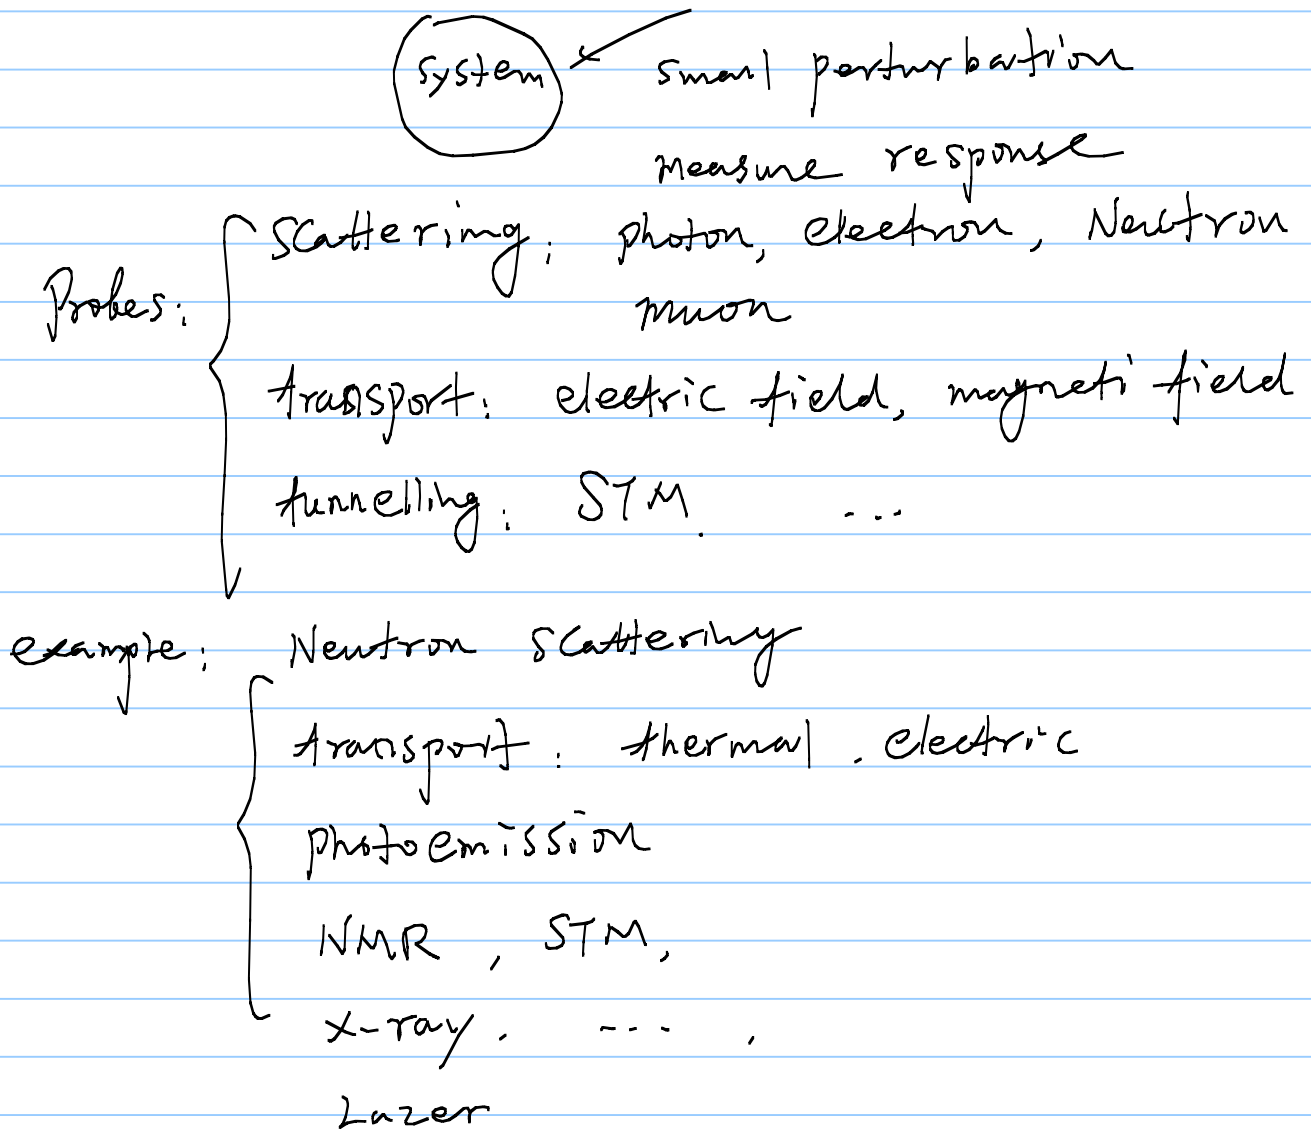 system small perturbation
measure response
Probes: scattering: photon, electron, Neutron
muon
transport: electric field, magneti field
tunnelling: STM. ...
example: Neutron scattering
transport: thermal. electric
photoemission
NMR, STM,
x-ray. ---.
Lazer